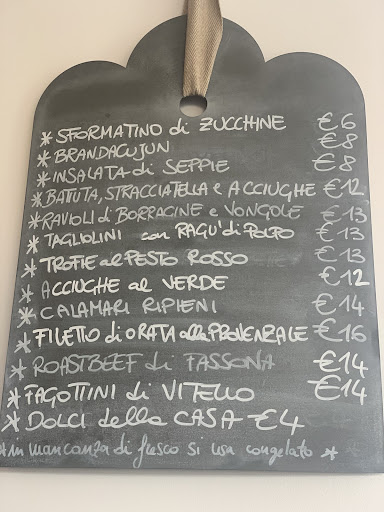 * SFORMATINO di ZUCCHINE €6
* BRANDACUJUN €8
* INSALATA di SEPPIE €8
* BATTUTA, STRACCIATELLA e ACCIUGHE €12
* RAVIOLI di BORRAGINE e VONGOLE €13
* TAGLIOLINI con RAGU' di POLPO €13
* TROFIE al PESTO ROSSO €13
* ACCIUGHE al VERDE €12
* CALAMARI RIPIENI €14
* FILETTO di ORATA alla PROVENZALE €16
* ROASTBEEF di FASSONA €14
* FAGOTTINI di VITELLO €14
* DOLCI della CASA €4
*in mancanza di fresco si usa congelato *